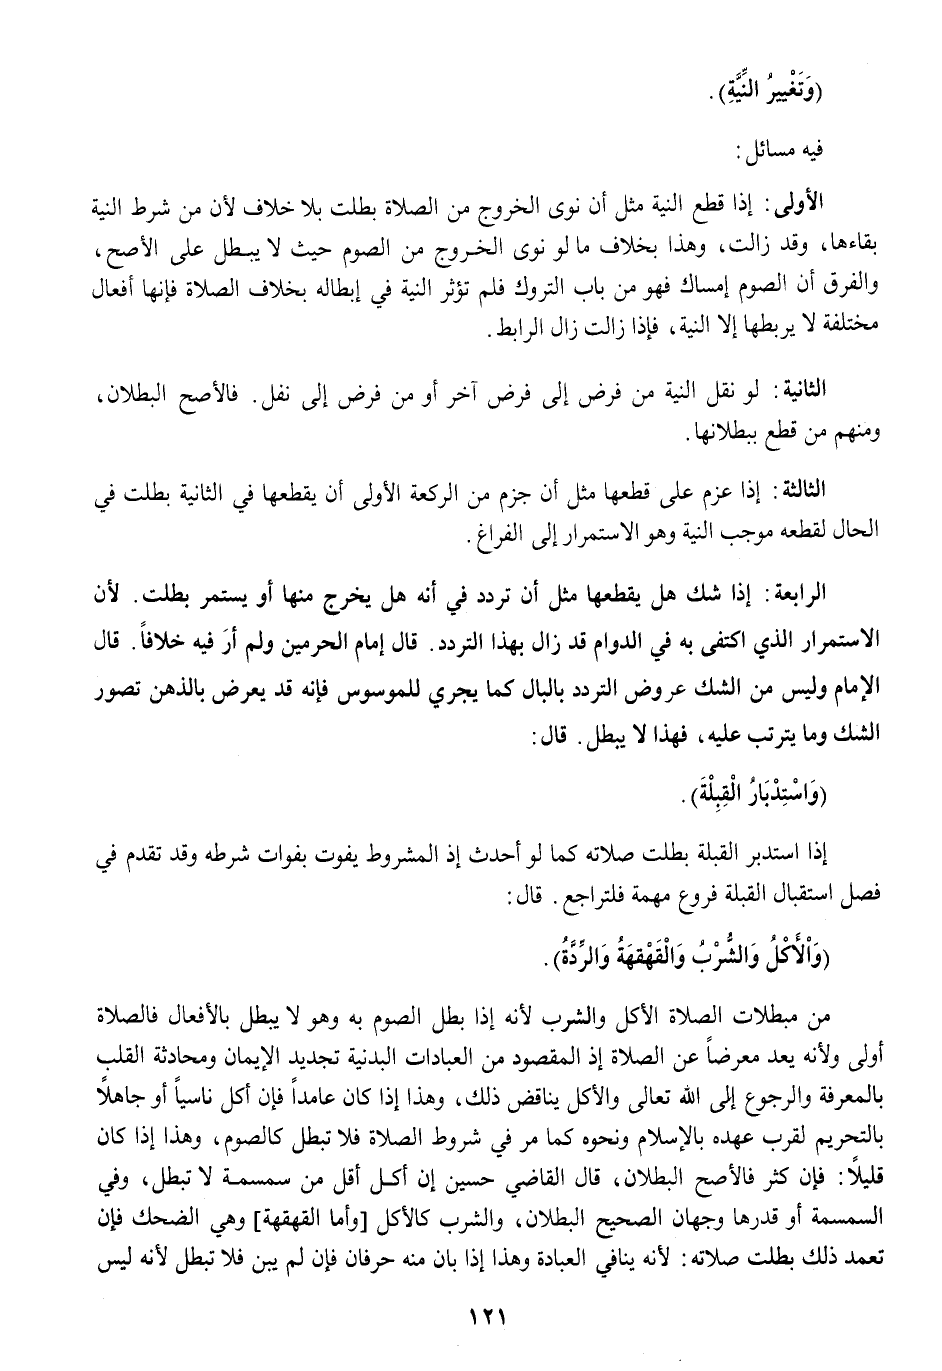 (وَتَغْيِيرُ النِّيَّةِ).
فيه مسائل:
الأولى: إذا قطع النية مثل أن نوى الخروج من الصلاة بطلت بلا خلاف لأن من شرط النية
بقاءها، وقد زالت، وهذا بخلاف ما لو نوى الخروج من الصوم حيث لا يبطل على الأصح،
والفرق أن الصوم إمساك فهو من باب التروك فلم تؤثر النية في إبطاله بخلاف الصلاة فإنها أفعال
مختلفة لا يربطها إلا النية، فإذا زالت زال الرابط.
الثانية: لو نقل النية من فرض إلى فرض آخر أو من فرض إلى نفل. فالأصح البطلان،
ومنهم من قطع ببطلانها.
الثالثة: إذا عزم على قطعها مثل أن جزم من الركعة الأولى أن يقطعها في الثانية بطلت في
الحال لقطعه موجب النية وهو الاستمرار إلى الفراغ.
الرابعة: إذا شك هل يقطعها مثل أن تردد في أنه هل يخرج منها أو يستمر بطلت. لأن
الاستمرار الذي اكتفى به في الدوام قد زال بهذا التردد. قال إمام الحرمين ولم أرَ فيه خلافاً. قال
الإمام وليس من الشك عروض التردد بالبال كما يجري للموسوس فإنه قد يعرض بالذهن تصور
الشك وما يترتب عليه، فهذا لا يبطل. قال:
(وَاسْتِدْبَارُ الْقِبِلْةَ).
إذا استدبر القبلة بطلت صلاته كما لو أحدث إذ المشروط يفوت بفوات شرطه وقد تقدم في
فصل استقبال القبلة فروع مهمة فلتراجع. قال:
(وَاْلأَكْلُ وَالشُّرْبُ وَالْقَهْقهَةُ وَالرِّدَّةُ).
من مبطلات الصلاة الأكل والشرب لأنه إذا بطل الصوم به وهو لا يبطل بالأفعال فالصلاة
أولى ولأنه يعد معرضاً عن الصلاة إذ المقصود من العبادات البدنية تجديد الإيمان ومحادثة القلب
بالمعرفة والرجوع إلى الله تعالى والأكل يناقض ذلك، وهذا إذا كان عامداً فإن أكل ناسياً أو جاهلاً
بالتحريم لقرب عهده بالإسلام ونحوه كما مر في شروط الصلاة فلا تبطل كالصوم، وهذا إذا كان
قليلاً: فإن كثر فالأصح البطلان، قال القاضي حسين إن أكل أقل من سمسمة لا تبطل، وفي
السمسمة أو قدرها وجهان الصحيح البطلان، والشرب كالأكل [وأما القهقهة] وهي الضحك فإن
تعمد ذلك بطلت صلاته: لأنه ينافي العبادة وهذا إذا بان منه حرفان فإن لم يبن فلا تبطل لأنه ليس
١٢١